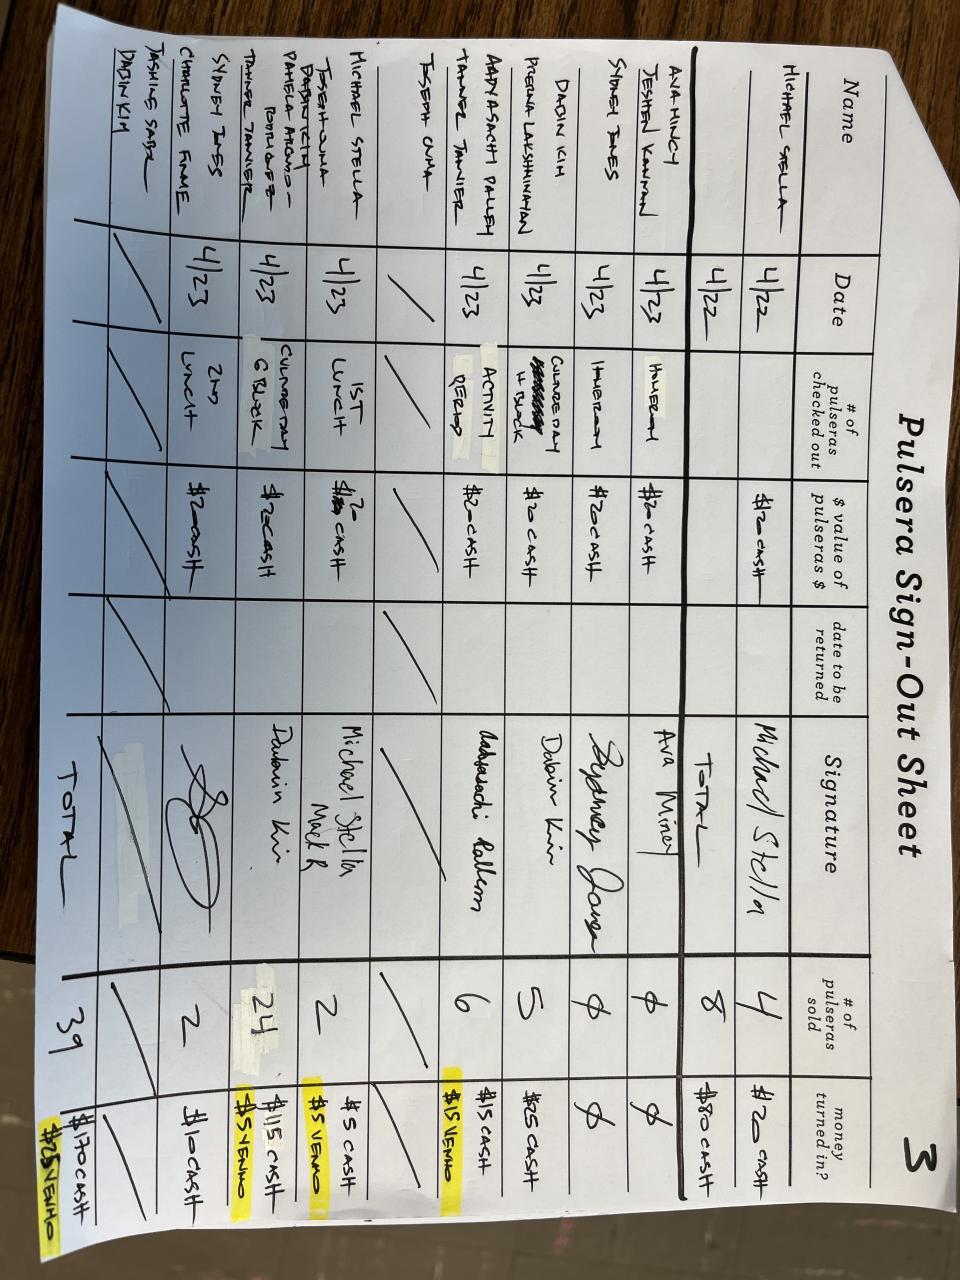 Pulsera Sign-Out Sheet
3
Name
Date
# of
pulseras
checked out
$ value of
pulseras $
date to be
returned
Signature
# of
pulseras
sold
money
turned in?
MICHAEL STELLA
4/22
$120 CASH
Michael Stella
4
$20 CASH
4/22
TOTAL
8
$80 CASH
AVA MINCY
JESHEN KANNAN
4/23
HOMEROOM
$20 CASH
Ava Mincy
∅
∅
SYDNEY JONES
4/23
HOMEROOM
$20 CASH
Sydney Jones
∅
∅
DABIN KIM
PRERNA LAKSHMINAYAN
4/23
CULTURE DAY
H BLOCK
$20 CASH
Dabin Kim
5
$25 CASH
AADYASACHI PALLEM
TANNER TANNER
4/23
ACTIVITY
PERIOD
$20 CASH
Aadyasachi Pallem
6
$15 CASH
$15 VENMO
JOSEPH OUMA
MICHAEL STELLA
JOSEPH OUMA
4/23
1ST
LUNCH
20
CASH
Michael Stella
Mack R
2
$5 CASH
$5 VENMO
DABIN KIM
PAMELA
RODRIGUEZ
TANNER TANNER
4/23
CULTURE DAY
G BLOCK
$20 CASH
Dabin Kim
24
$115 CASH
$5 VENMO
SYDNEY JONES
CHARLOTTE
4/23
2ND
LUNCH
$20 CASH
2
$10 CASH
JASMINE
DABIN KIM
TOTAL
39
$170 CASH
$25 VENMO